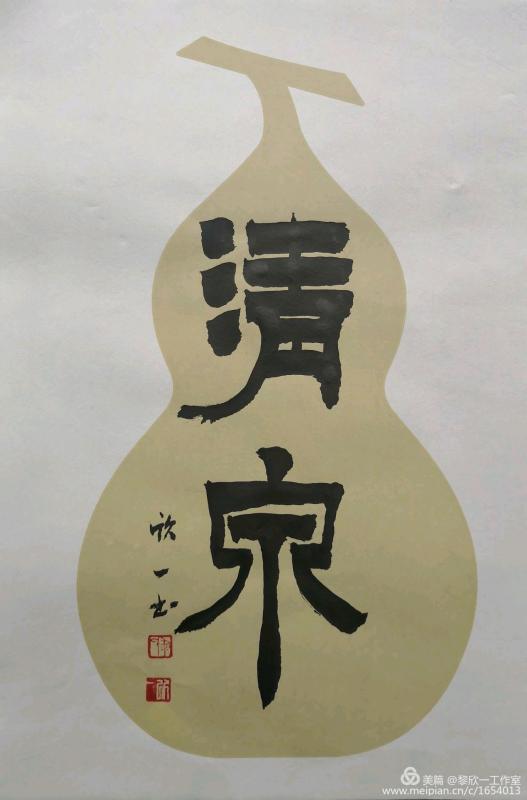 清泉
欣一书
美篇 @黎欣一工作室
www.meipian.cn/c/1654013